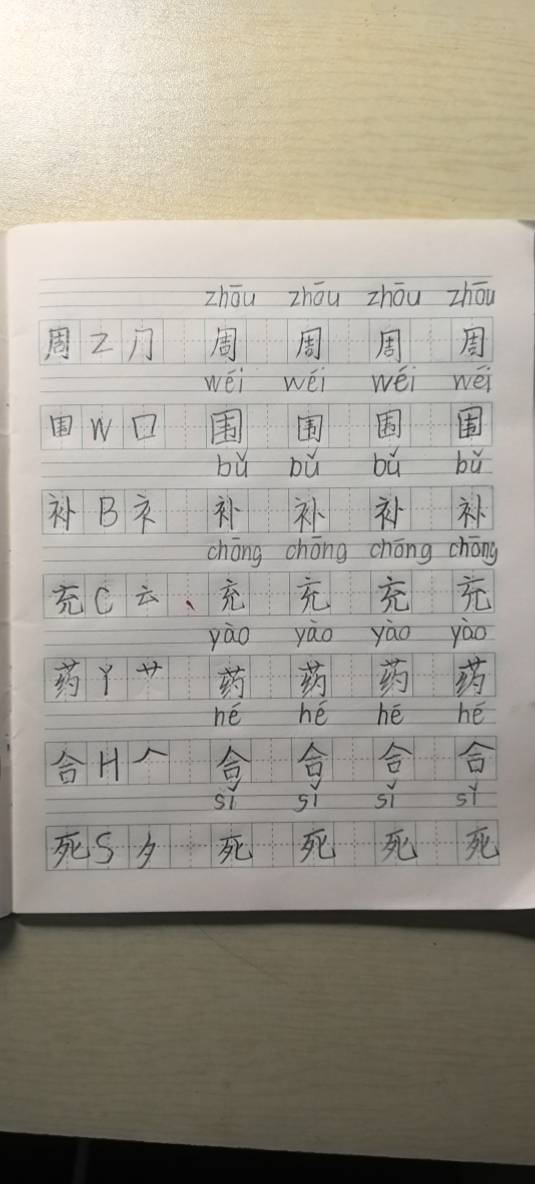 zhōu zhōu zhōu zhōu
周 Z 冂 周 周 周 周
wéi wéi wéi wéi
围 W 囗 围 围 围 围
bǔ bǔ bǔ bǔ
补 B 衤 补 补 补 补
chōng chōng chōng chōng
充 C 云 充 充 充 充
yào yào yào yào
药 Y 艹 药 药 药 药
hé hé hé hé
合 H 𠆢 合 合 合 合
sǐ sǐ sǐ sǐ
死 S 夕 死 死 死 死